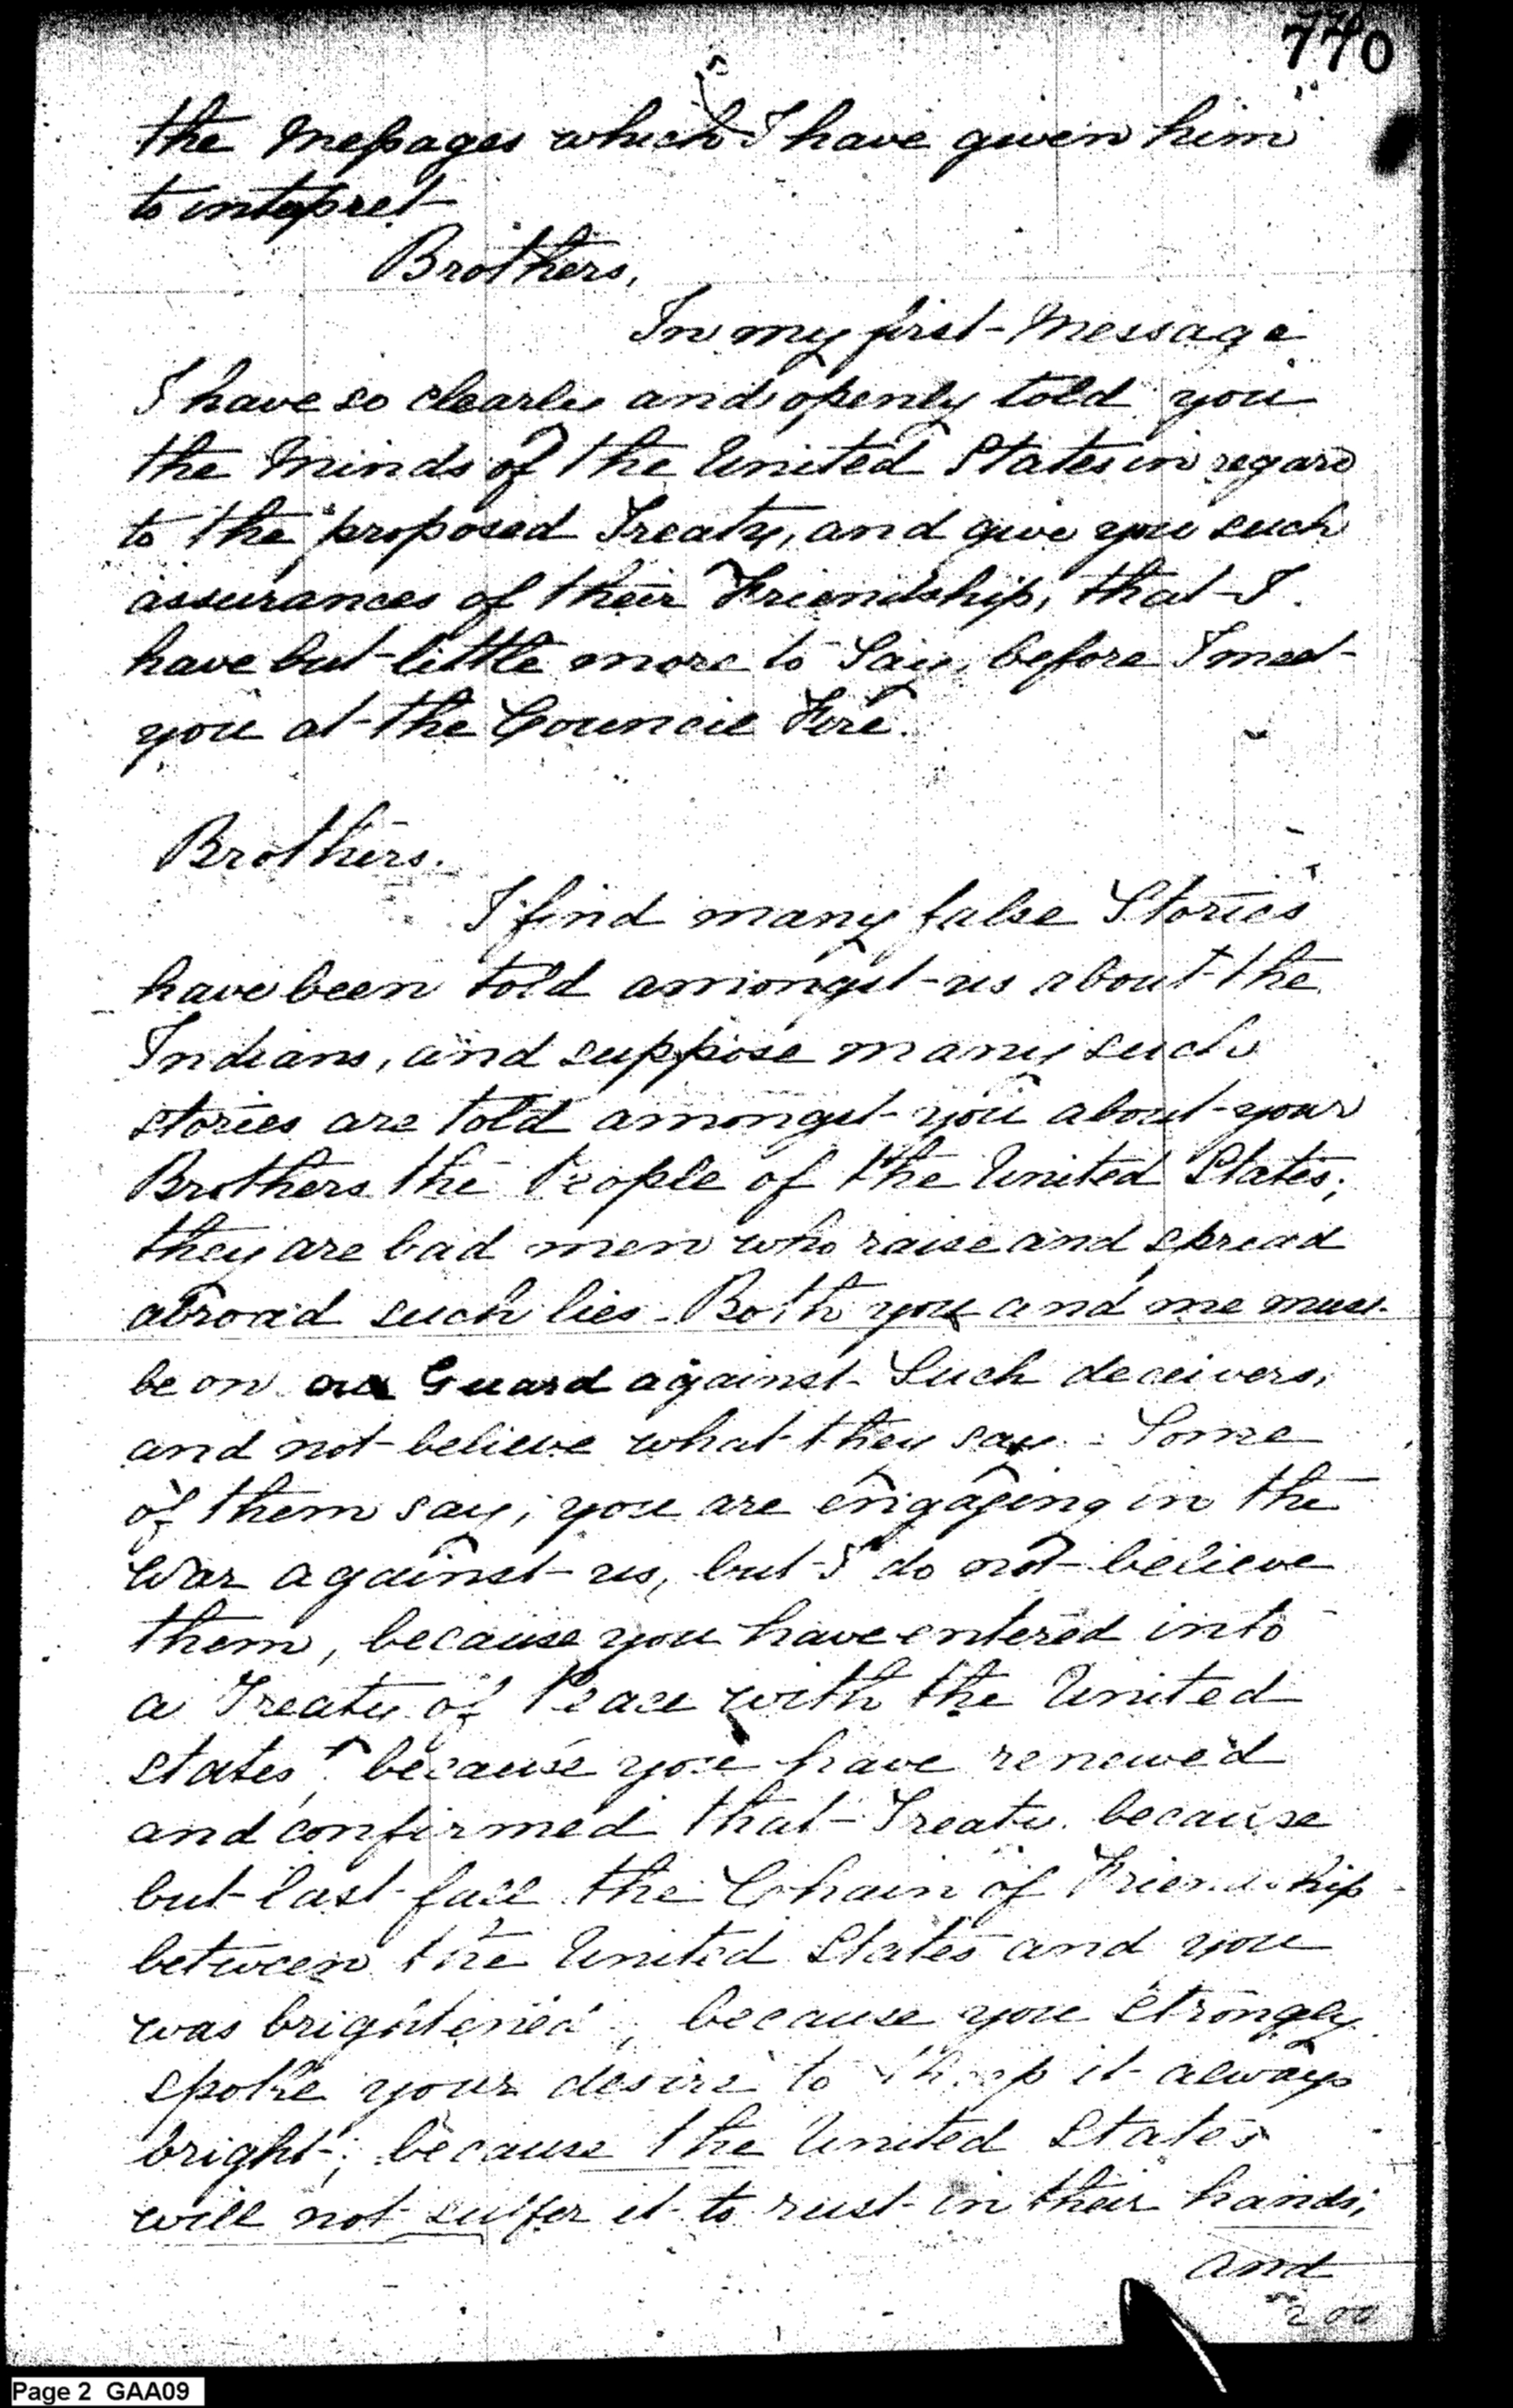 770
the Messages which I have given him
to intepret
Brothers,
In my first Message
I have so clearly and openly told you
the Minds of the United States in regard
to the proposed Treaty, and give you such
assurances of their Friendship, that I
have but little more to Say, before I meet
you at the Council Fire.
Brothers.
I find many false Stories
have been told amongst us about the
Indians, and suppose many such
stories are told amongst you about your
Brothers the People of the United States;
they are bad men who raise and spread
abroad such lies - Both you and me must
be on our Guard against Such deceivers,
and not believe what they say - Some
of them say, you are engaging in the
War against us, but I do not believe
them, because you have entered into
a Treaty of Peace with the United
States, because you have renewed
and confirmed that Treaty. because
but last fall the Chain of Friendship
between the United States and you
was brightened, because you strongly
spoke your desire to keep it always
bright; because the United States
will not suffer it to rust in their hands;
and
200
Page 2 GAA09